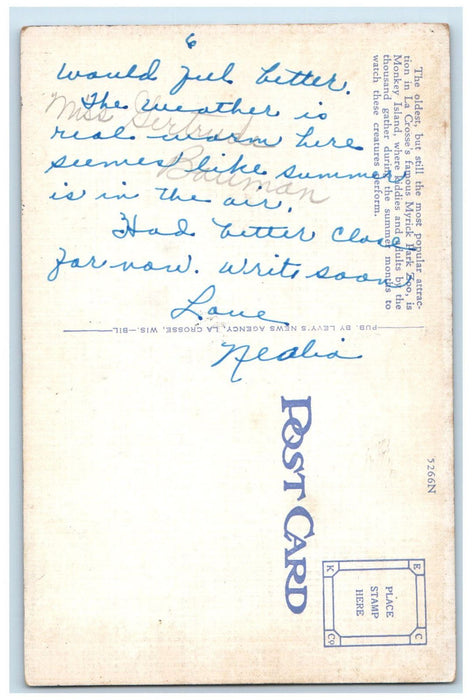 6
would feel better.
The weather is
real warm here
seemes like summer
is in the air.
Had better close
for now. Write soon
Love
Nealia
Miss Gertrude
Bauman
The oldest, but still the most popular attrac-
tion in La Crosse's famous Myrick Park Zoo, is
Monkey Island, where kiddies and adults by the
thousand gather during the summer months to
watch these creatures perform.
PUB. BY LEVY'S NEWS AGENCY, LA CROSSE, WIS.—BIL
POST CARD
5266N
E C K Co
PLACE
STAMP
HERE